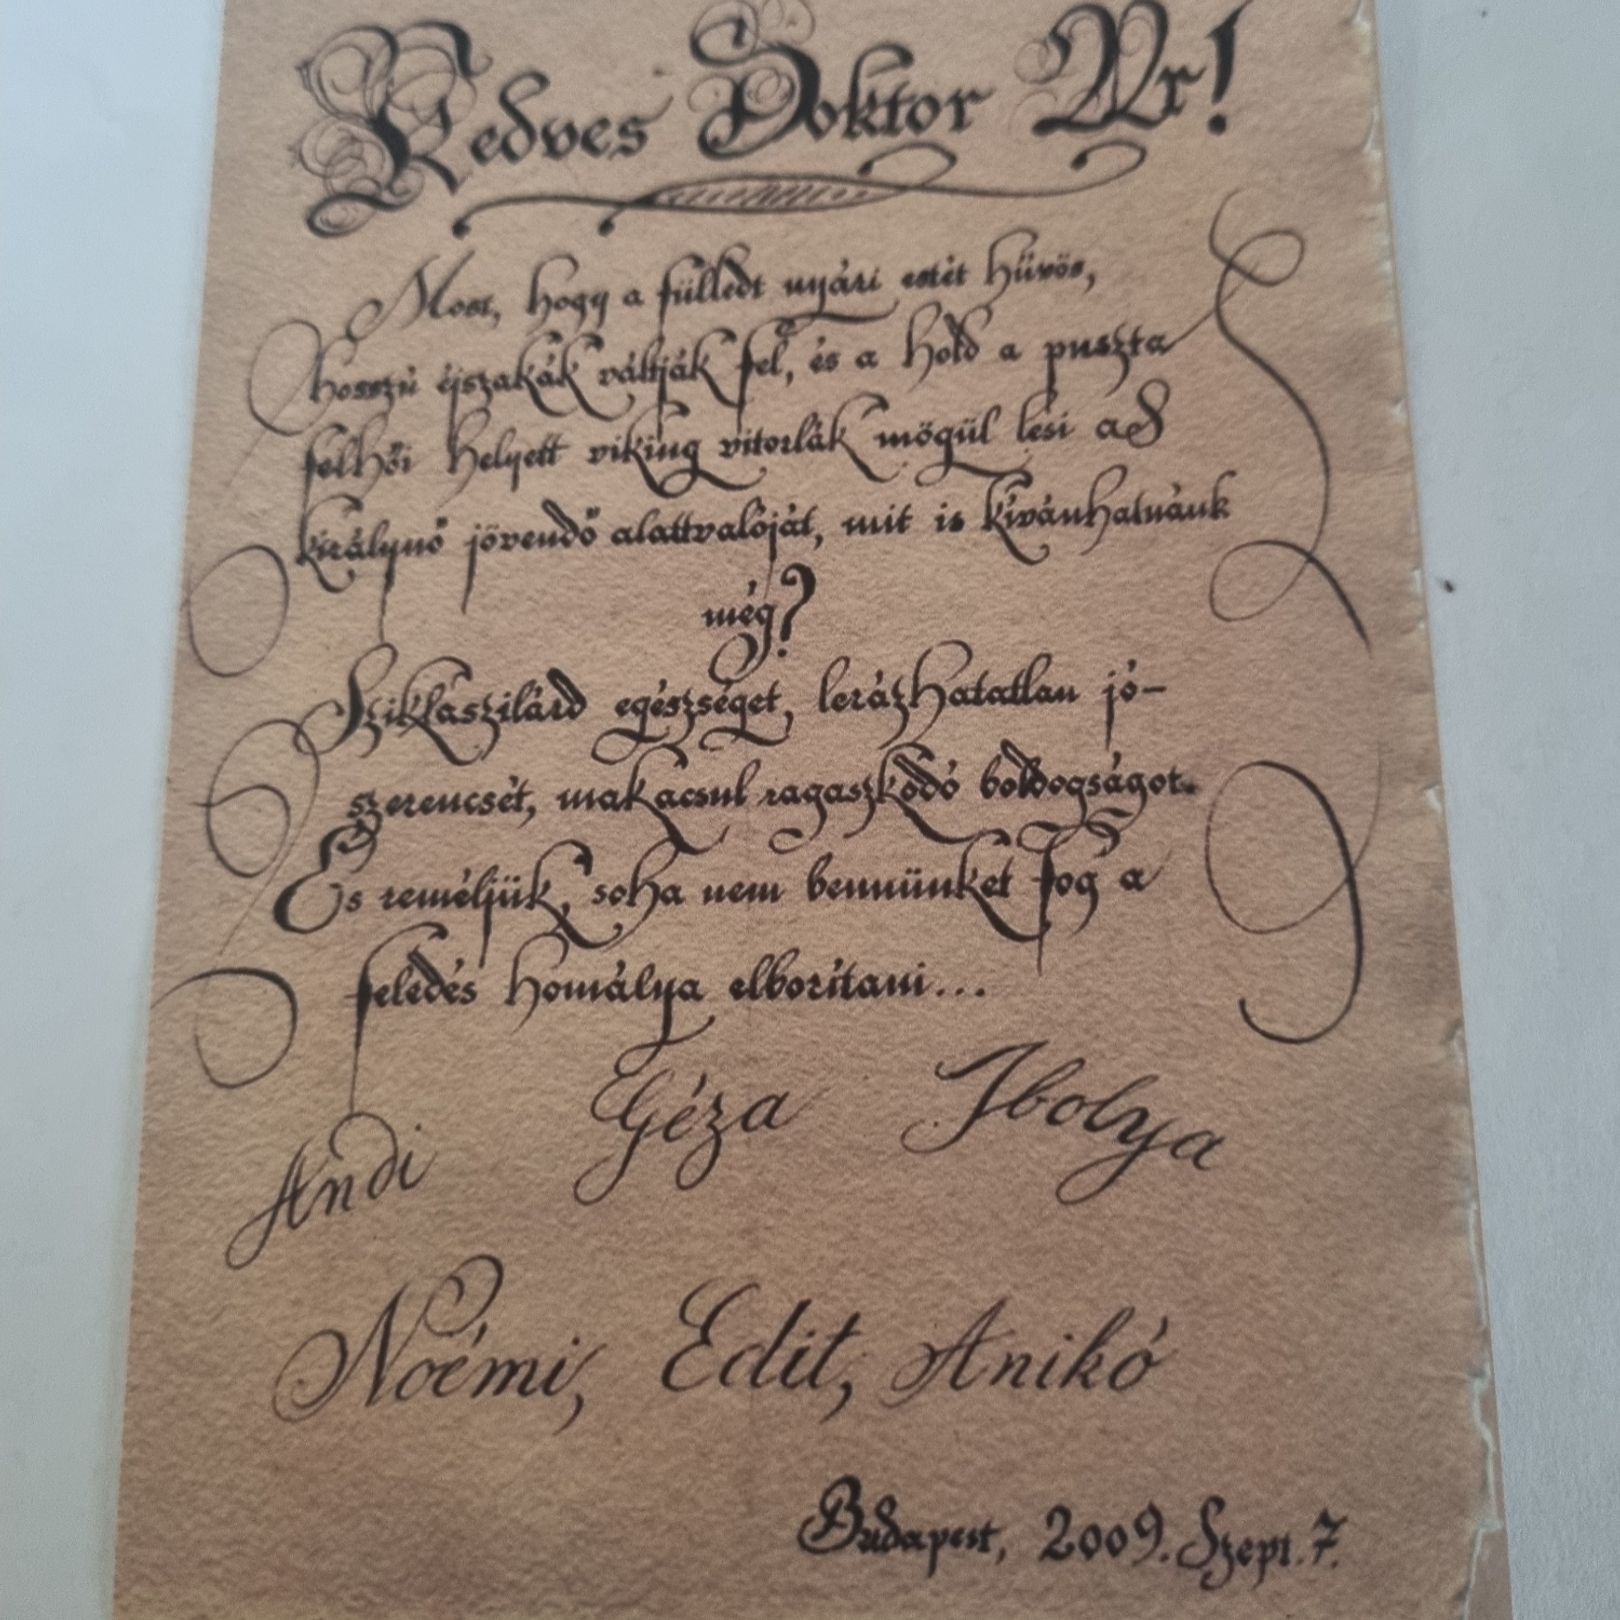 Kedves Doktor Úr!
Most, hogy a fülledt nyári estét hűvös,
hosszú éjszakák váltják fel, és a hold a puszta
felhői helyett viking vitorlák mögül lesi a
királynő jövendő alattvalóját, mit is kívánhatnánk
még?
Sziklaszilárd egészséget, lerázhatatlan jó-
szerencsét, makacsul ragaszkodó boldogságot.
És reméljük, soha nem bennünket fog a
feledés homálya elborítani...
Géza Ibolya
Andi
Noémi, Edit, Anikó
Budapest, 2009. Szept. 7.